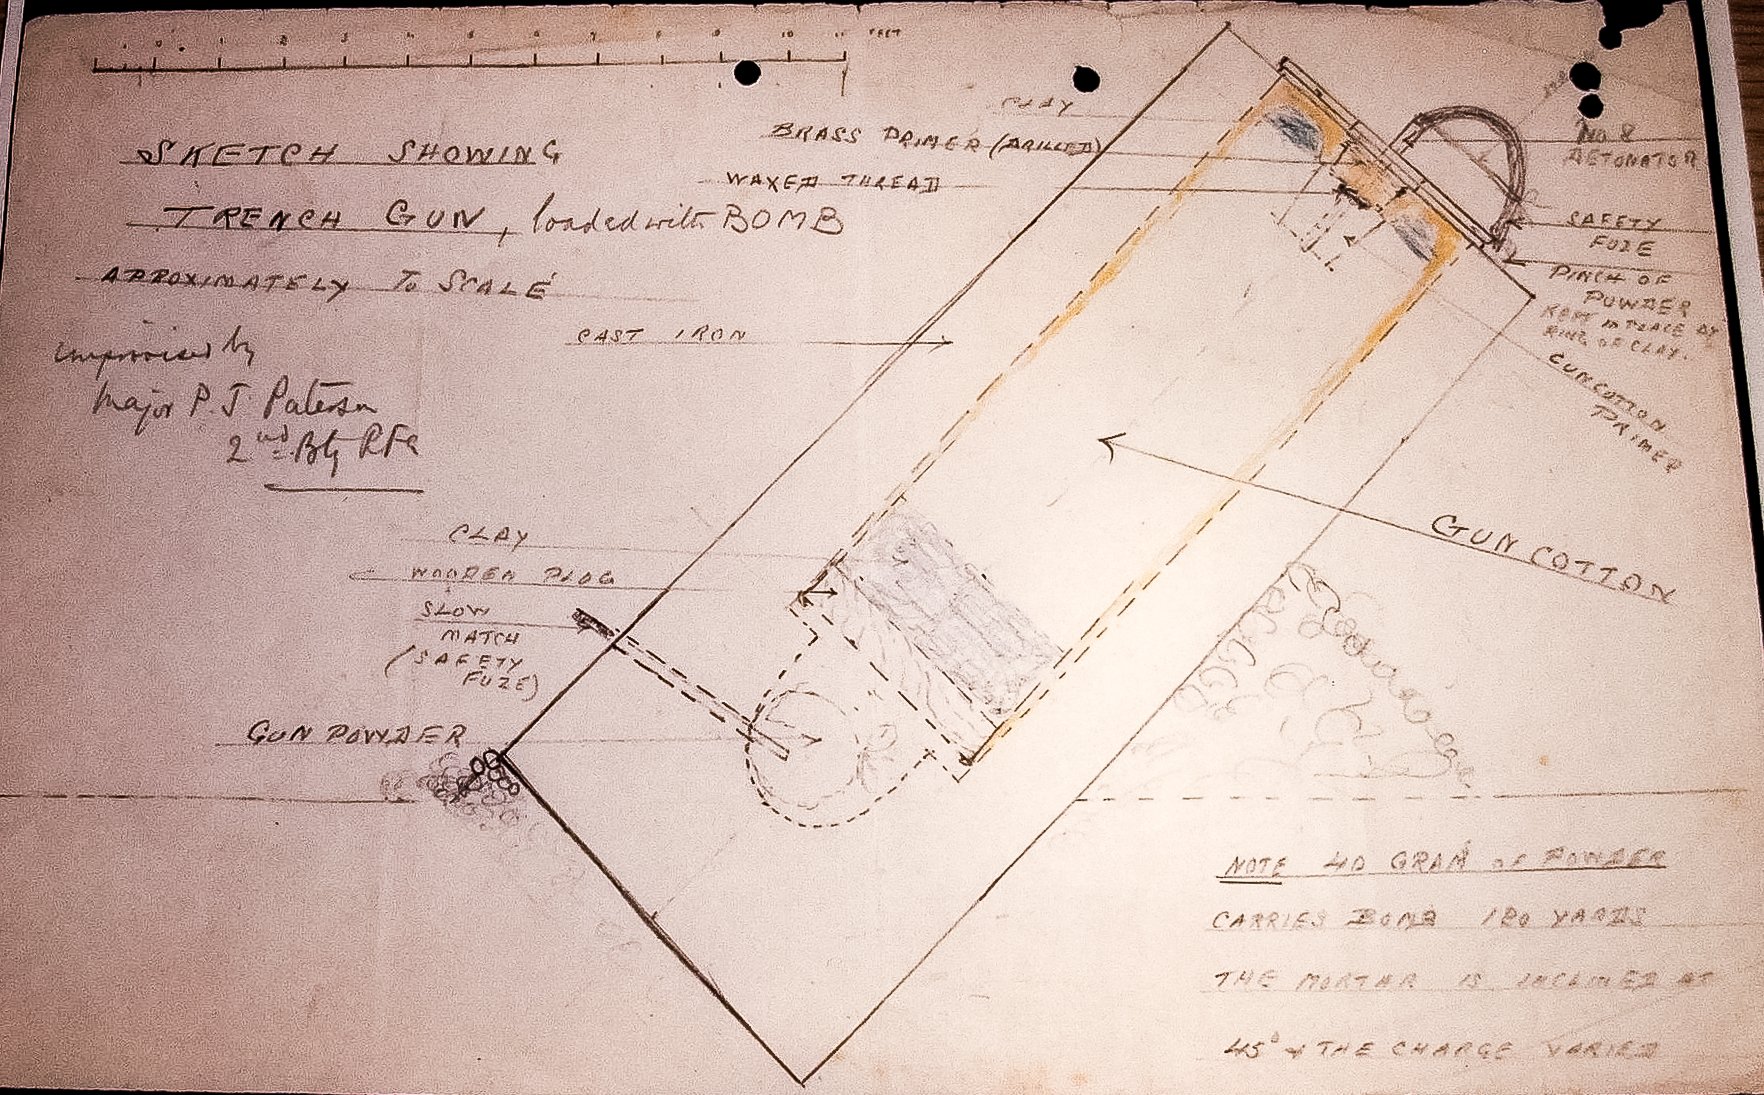 FEET
SKETCH SHOWING
TRENCH GUN, loaded with BOMB
APROXIMATELY TO SCALE
improvised by
Major P. J. Paterson
2nd Bty RFA
CLAY
BRASS PRIMER (DRILLED)
WAXED THREAD
CAST IRON
No 8
DETONATOR
SAFETY
FUZE
PINCH OF
POWDER
KEPT IN PLACE BY
RING OF CLAY.
GUNCOTTON
PRIMER
GUN COTTON
CLAY
WOODEN PLUG
SLOW
MATCH
(SAFETY
FUZE)
GUN POWDER
NOTE 40 GRAM OF POWDER
CARRIES BOMB 180 YARDS
THE MORTAR IS INCLINED AT
45° & THE CHARGE VARIED